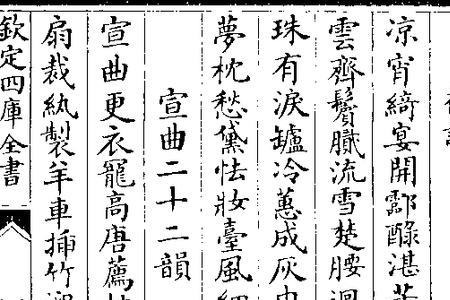 涼宵綺宴開酃醁湛
雲齊鬢膩流雪楚腰迴
珠有淚罏冷蕙成灰
夢枕愁黛怯妝臺風細
宣曲二十二韻
宣曲更衣寵高唐薦枕
扇裁紈製羊車插竹迎
欽定四庫全書